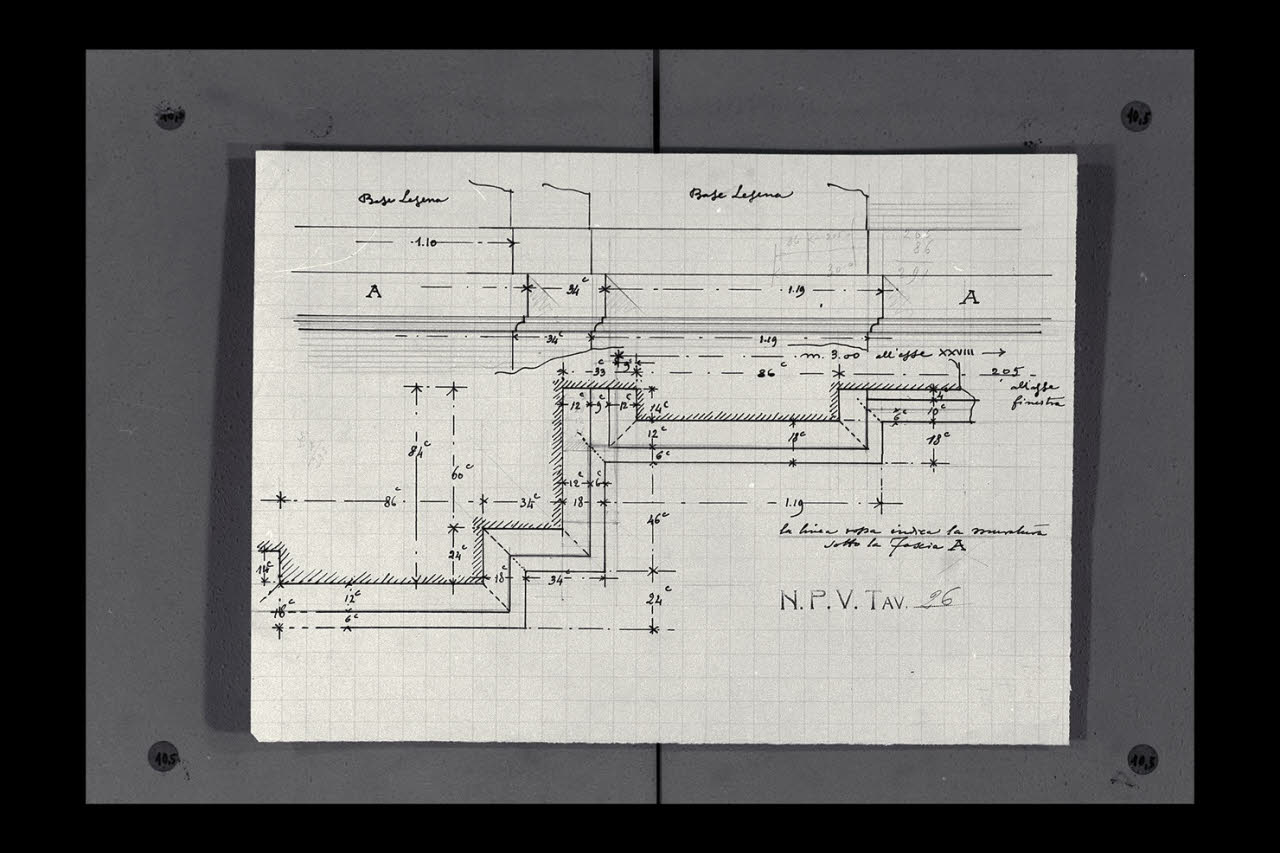 10,5
10,5
Base Lesena
Base Lesena
1.10
A
34ᶜ
1.19
A
34ᶜ
1.19
m. 3.00 all'asse XXVIII
33ᶜ
9ᶜ
86ᶜ
205
all'asse
finestra
12ᶜ 9ᶜ 12ᶜ
14ᶜ
4ᶜ
6ᶜ
10ᶜ
12ᶜ
18ᶜ
18ᶜ
6ᶜ
84ᶜ
60ᶜ
12ᶜ 6ᶜ
86ᶜ
34ᶜ
18
1.19
46ᶜ
la linea rossa indica la muratura
sotto la Fascia A
24ᶜ
14ᶜ
18ᶜ
34ᶜ
12ᶜ
24ᶜ
18ᶜ
6ᶜ
N.P.V. TAV. 26
10,5
10,5